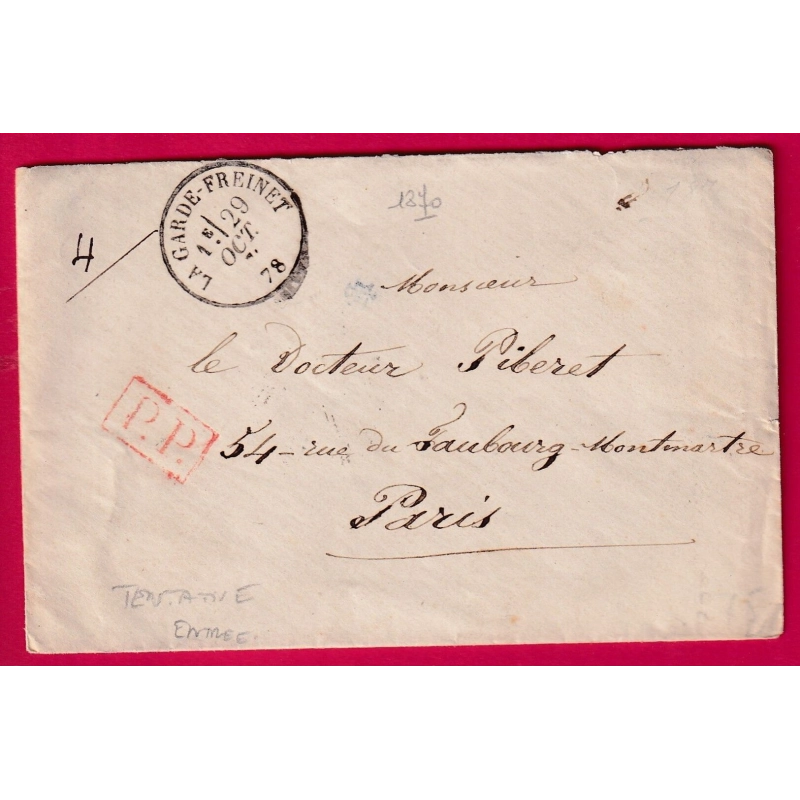 LA GARDE-FREINET
1E/
29
OCT.
78
1870
4
Monsieur
le Docteur Piberet
54-rue du Faubourg-Montmartre
Paris
P.P.
TENTATIVE
ENTREE.